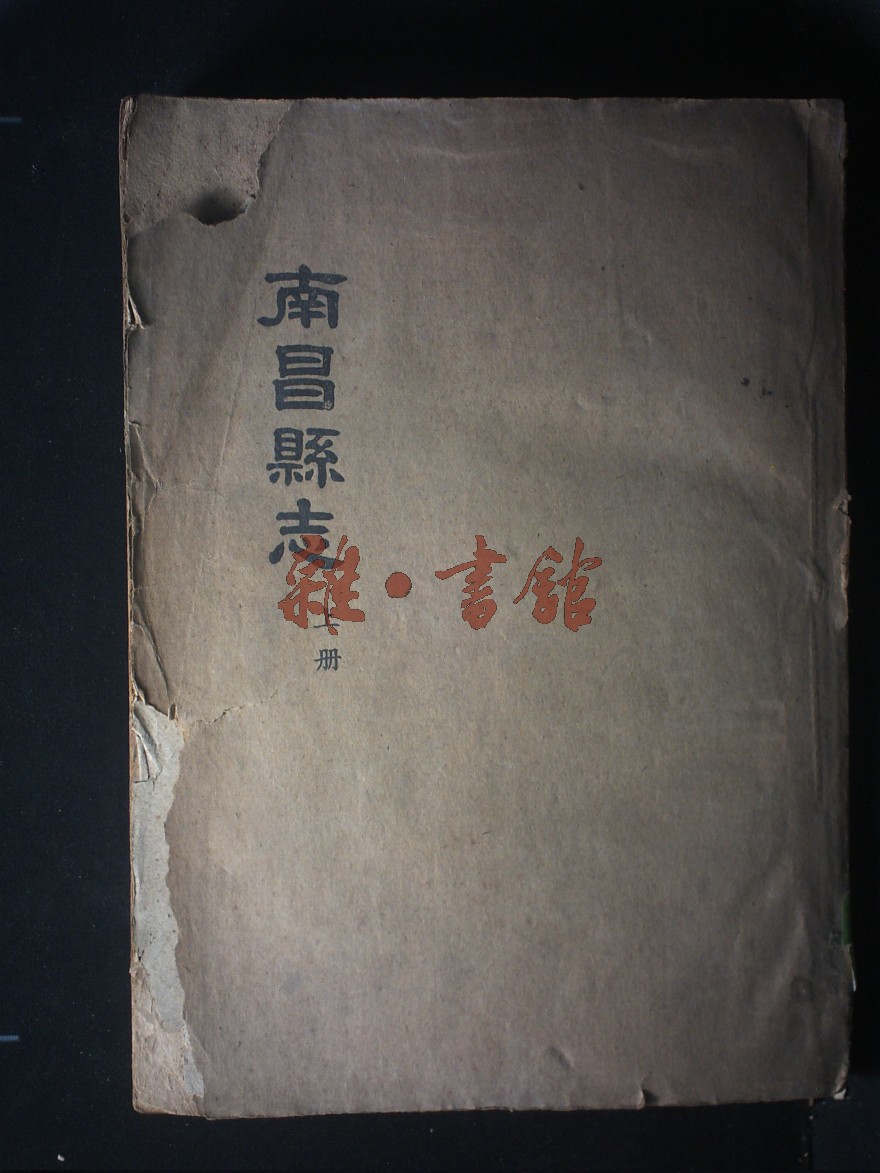 南昌縣志
册
雜·書館